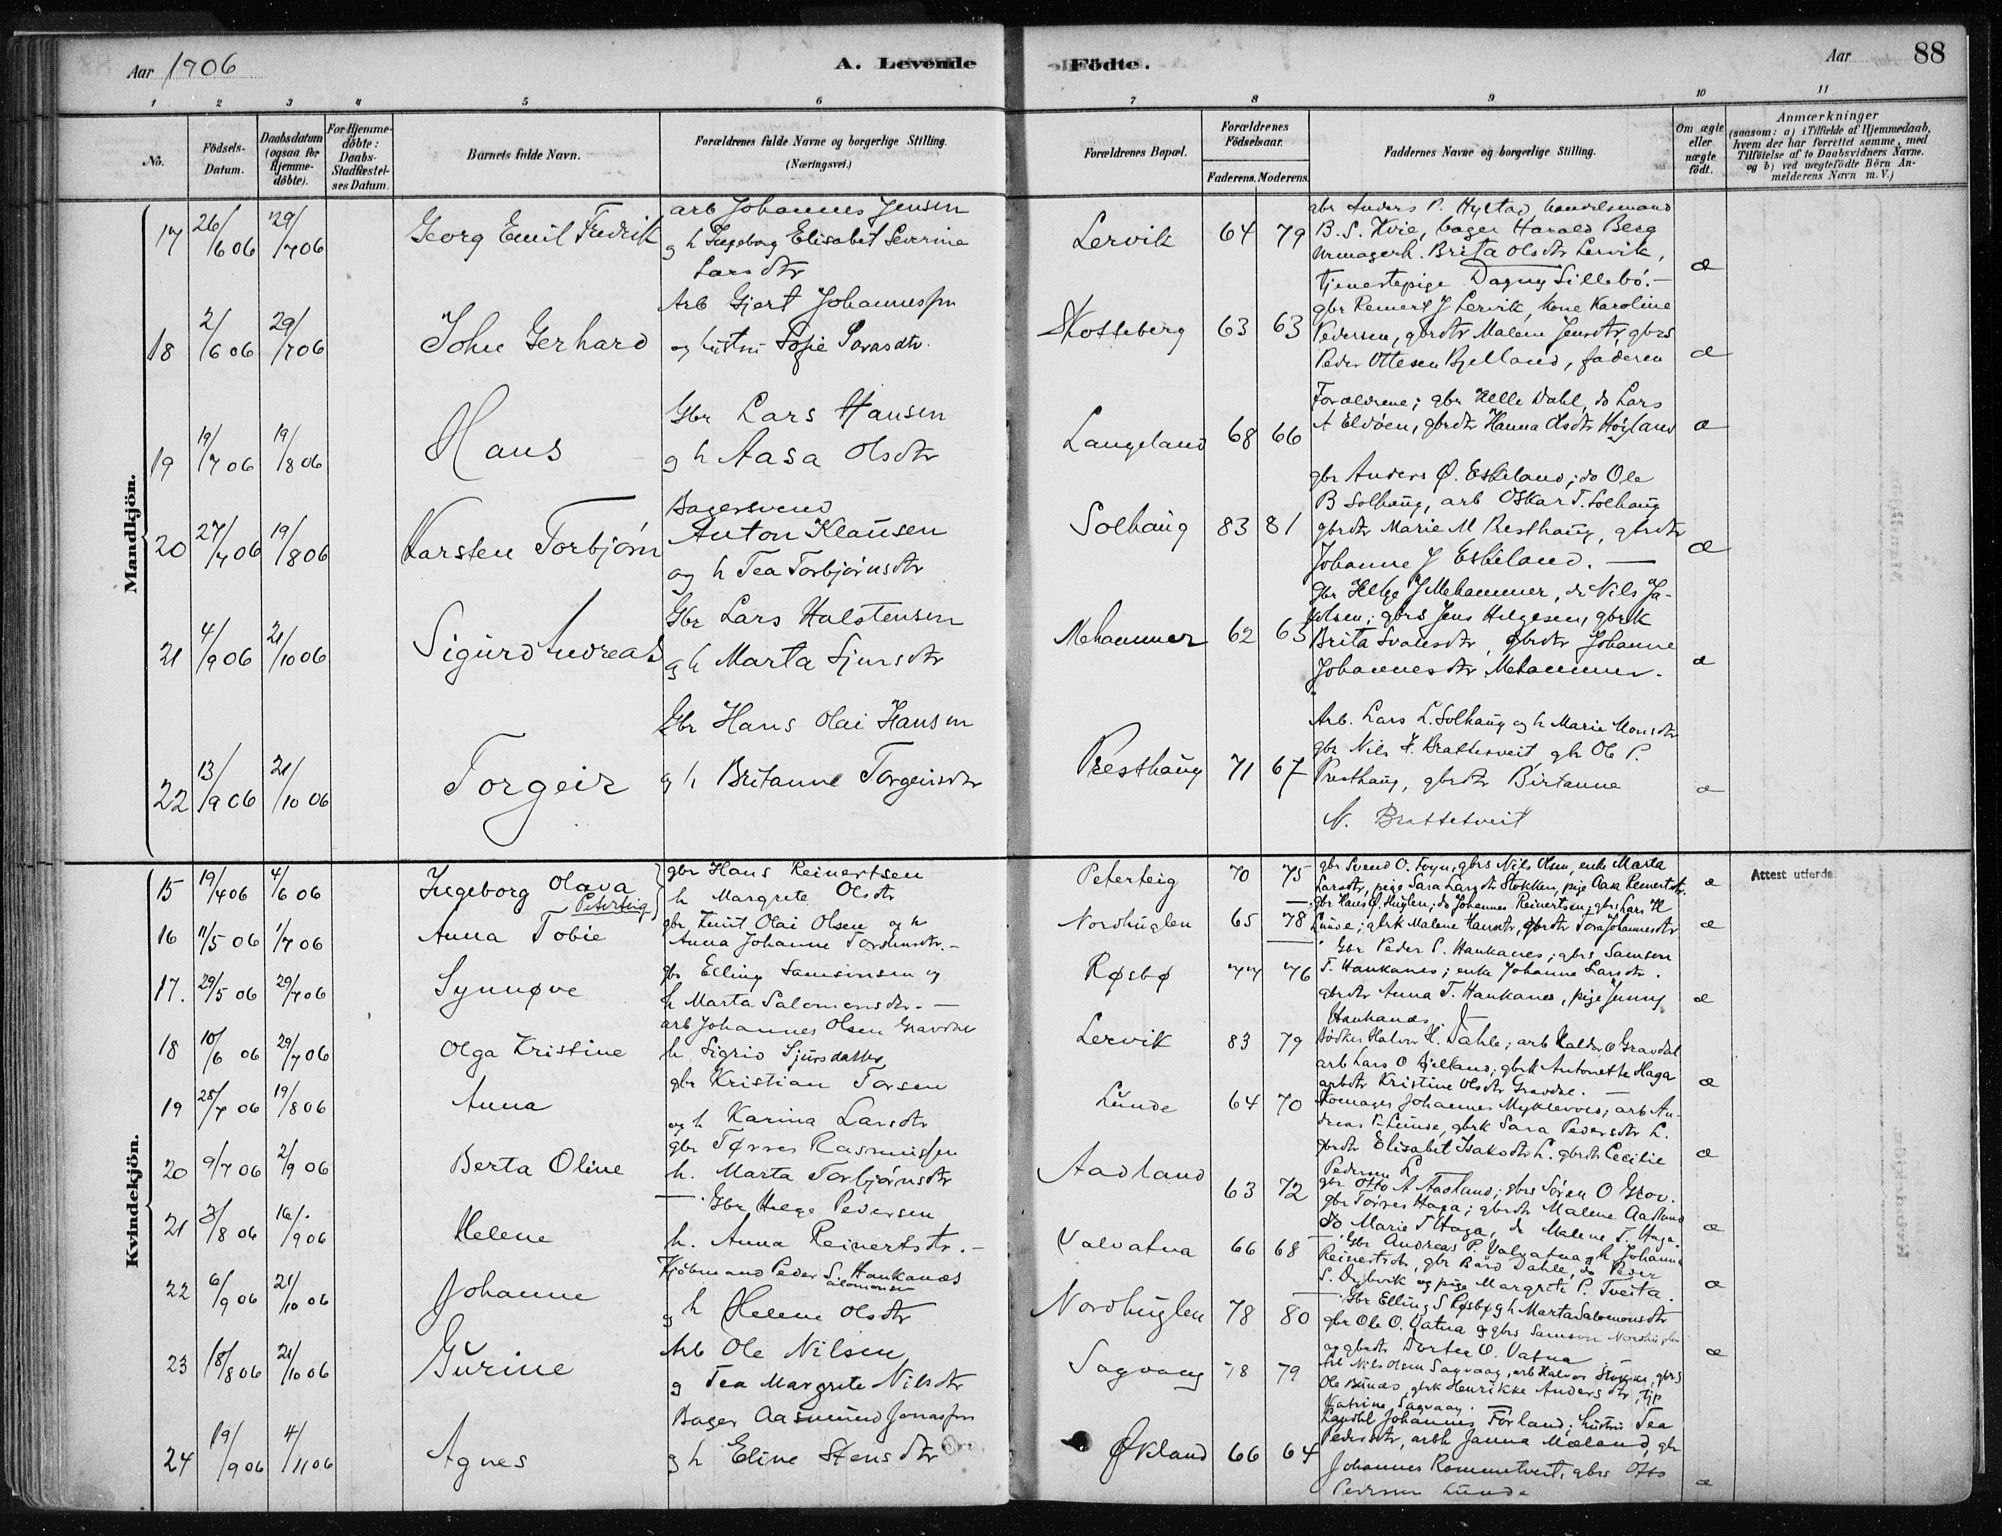 Aar 1906
A. Levende
Födte.
Aar 88
1 2 3 4 5 6 7 8 9 10 11
No.
Födsels-Datum.
Daabsdatum (ogsaa for Hjemmedöbte).
For Hjemmedöbte: Daabs-Stadfæstelses Datum.
Barnets fulde Navn.
Forældrenes fulde Navne og borgerlige Stilling. (Næringsvei.)
Forældrenes Bopæl.
Forældrenes Födselsaar.
Faderens. Moderens.
Faddernes Navne og borgerlige Stilling.
Om ægte eller uægte födt.
Anmærkninger
(saasom: a) i Tilfælde af Hjemmedaab, hvem der har forrettet samme, med Tilföielse af to Daabsvidners Navne. og b) ved uægtefödte Börn Anmelderens Navn m. V.)
Mandkjön.
17 26/6 06 29/7 06 Georg Emil Fredrik
arb Johannes Jensen
og h Ingeborg Elisabet Severine
Larsdtr
Lervik 64 79
gbr Anders P. Hystad handelsmand
B. S. Kvie, bager Harald Berg
urmagerk. Brita Olsdtr Lervik,
tjenestepige Dagny Sillebö.— æ
18 2/6 06 29/7 06 John Gerhard
Arb Gjert Johannessen
og hustru Sofie
Skotteberg 63 63
gbr Reinert J Lervik, kone Karoline
Pedersen, gbrdtr Malene Jensdtr, gbrs
Peder Ottesen Bjelland, faderen æ
19 19/7 06 19/8 06 Hans
Gbr Lars Hansen
og h Aasa Olsdtr
Langeland 68 66
Forældrene; gbr Helle Dahl, do Lars
A Eldöen, gbrdtr Hanna Olsdtr Högland æ
20 27/7 06 19/8 06 Karsten Torbjørn
Bagersvend
Anton Klausen
og h Tea Torbjørnsdtr
Solhaug 83 81
gbr Anders Ø. Eskeland; do Ole
B Solhaug, arb Oskar T. Solhaug
gbrdtr Marie M Presthaug, gbrdtr
Johanne J Eskeland. — æ
21 4/9 06 21/10 06 Sigurd Andreas
Gbr Lars Halstensen
og h Marta Sjursdtr
Mehammer 62 63
gbr Helge J Mehammer, do Nils Ja-
kobsen; gbrs Jens Helgesen, gbrk
Brita Svansdtr, gbrdtr Johanne
Johannesdtr Mehammer. æ
22 13/9 06 21/10 06 Torgeir
Gbr Hans Olai Hansen
og h Britanne Torgeirsdtr
Presthaug 71 67
Arb. Lars L. Solhaug og h Marie Monsdtr
gbr Nils H. Brattesveit gbr Ole P.
Presthaug, gbrdtr Birtanne
N. Brattetveit æ
Kvindekjön.
15 19/4 06 4/6 06 Ingeborg Olava
Peterteig
gbr Hans Reinertsen
h Margrete Olsdtr
Peterteig 70 75
gbr Svend O. Foyn, gbrs Nils Olsen, enke Marta
Larsdtr, pige Sara Larsdtr Stokken, pige Aasa Reinertsdtr. æ
Attest utferdet
16 11/5 06 1/7 06 Anna Tobie
gbr Knut Olai Olsen og h
Anna Johanne Tordensdtr.—
Nordhuglen 65 78
gbr Hans Ø. Huglen, do Johannes Reinertsen, gbrs Lars H
Lunde; gbrk Malene Hansdtr, gbrdtr Tora Johannesdtr æ
17. 29/5 06 29/7 06 Synnøve
gbr Elling Samsonsen og
h Marta Salomonsdtr. —
Røsbø 77 76
Gbr Peder S. Haukanes; gbrs Samson
T. Haukanes; enke Johanne Larsdtr.
gbrdtr Anna T. Haukanes, pige Jenny
Haukanes æ
18 10/6 06 29/7 06 Olga Kristine
arb Johannes Olsen Gravdal
h. Sigrid Sjursdatter
Lervik 83 79
Bødker Halvor H. Dahle; arb Haldor O Gravdal
arb Lars O Bjelland, gbrk Antonette Haga
arbdtr Kristine Olsdtr Gravdal. — æ
19 28/7 06 19/8 06 Anna
gbr Kristian Torsen
og h Karina Larsdtr
Lunde 64 70
Skomager Johannes Myklevold; arb An-
dreas K Lunde, gbrk Sara Pedersdtr L.
gbrdtr Elisabet Isaksdtr L. gbrdtr Cecilie
Pedersen L æ
20 9/7 06 2/9 06 Berta Oline
gbr Tørres Rasmussen
h. Marta Torbjørnsdtr
Aadland 63 72
gbr Otto A Aadland; gbrs Søren O Grov.
gbr Tørres Haga; gbrdtr Malene Aadland
do Marie T Haga, do Malene T. Haga. æ
21 3/8 06 16/9 06 Helene
Gbr Helge Pedersen
h. Anna Reinertsdtr. —
Valvatna 66 68
Gbr Andreas P. Valvatna, gh Johanna
Reinertsdtr, gbr Bård Dahle, do Peder
S. Dybvik og pige Margrete P. Tveita. æ
22 6/9 06 21/10 06 Johanne
Kjöbmand Peder Salomonsen Haukanæs
og h Helene Olsdtr
Nordhuglen 78 80
Gbr Elling S Røsbø gh Marta Salomonsdtr
gbr Ole O. Vatna og gbrs Samson Nordhuglen
og gbrdtr Dortea O. Vatna æ
23 18/8 06 21/10 06 Gurine
Arb Ole Nilsen
og Tea Margrete Nilsdtr
Sagvaag 78 79
Arb Nils Olsen Sagvaag, arb Halvor Stokke, gbrs
Ole Bunæs, gbrk Henrikke Andersdtr, tjp
Katrine Sagvaag.
24 19/9 06 4/11 06 Agnes
Bager Aasmund Jonassen
og h Eline Stensdtr
Økland 66 64
Landhl Johannes Førland; hustru Tea
Pedersdtr, arbk Janna Mæland, gbr
Johannes Rommetveit, gbrs Otto
Pedersen Lunde æ